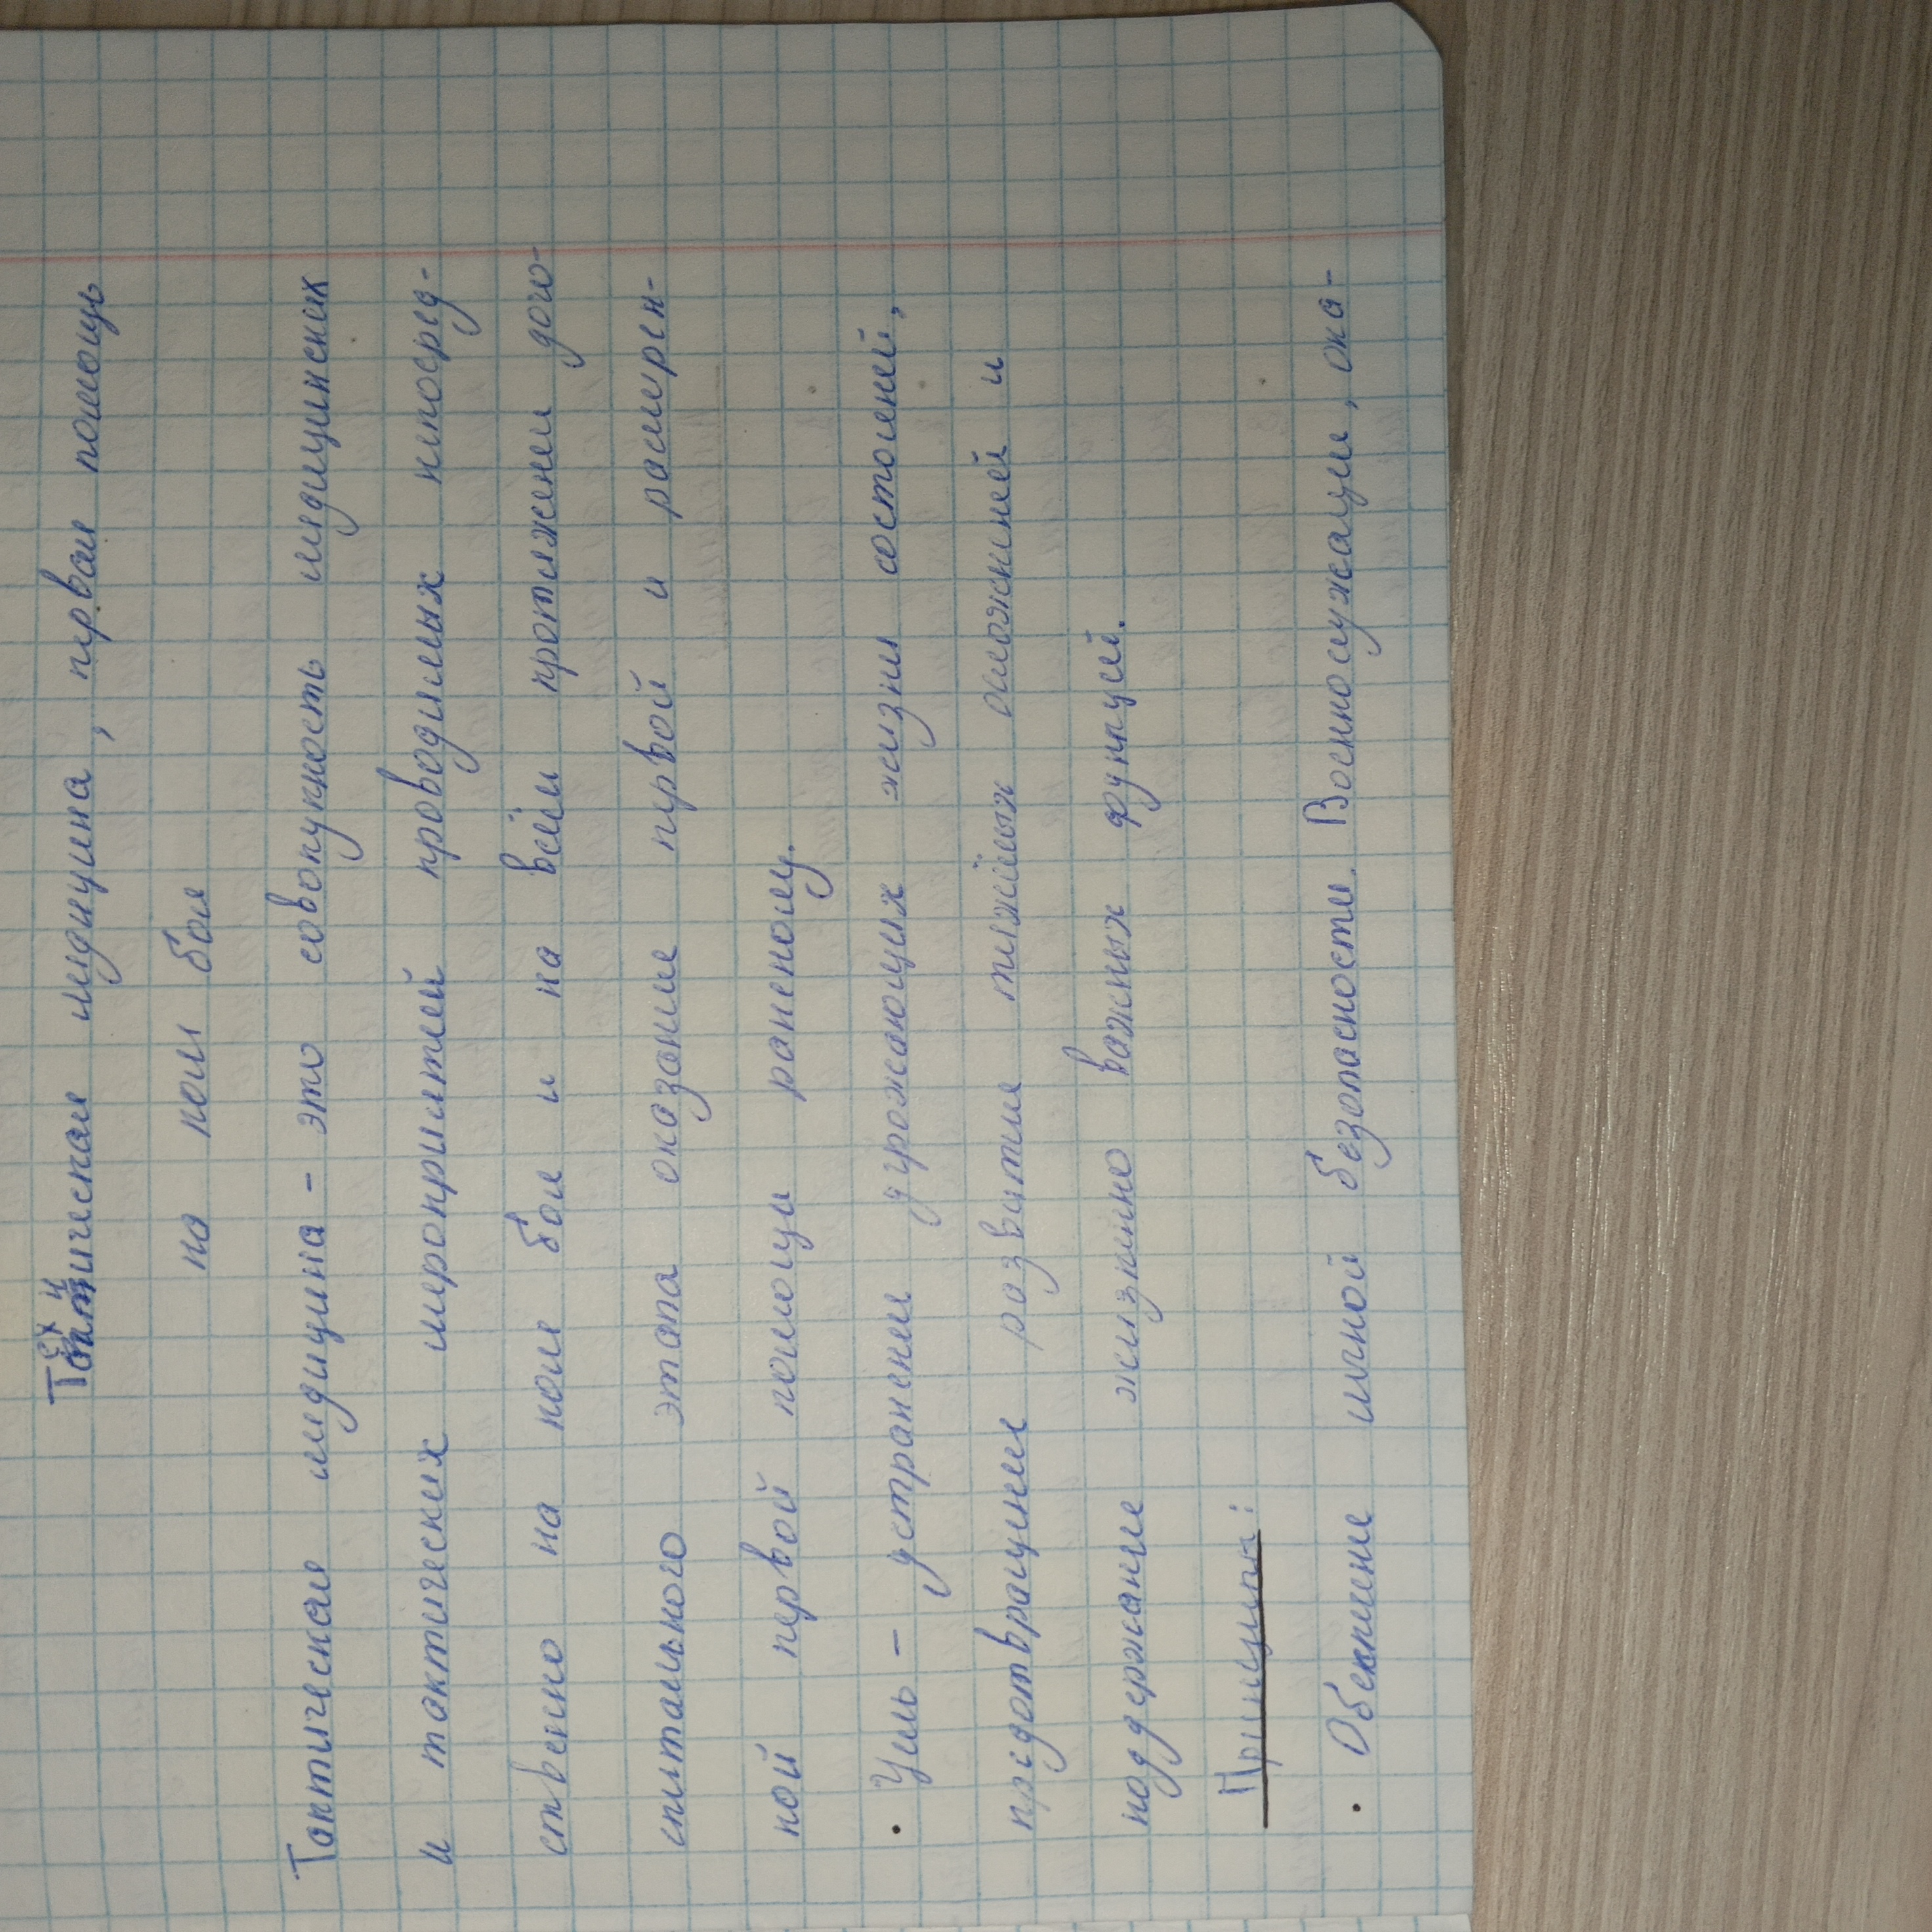 Тактическая медицина, первая помощь
на поле боя
Тактическая медицина - это совокупность медицинских
и тактических мероприятий проводимых непосред-
ственно на поле боя и на всём протяжении дого-
спитального этапа оказание первой и расширен-
ной первой помощи раненому.
• Цель - устранение угрожающих жизни состояний,
предотвращение развитие тяжёлых осложнений и
поддержание жизненно важных функций.
Принципы:
• Обеспечение личной безопасности. Военнослужащие, ока-